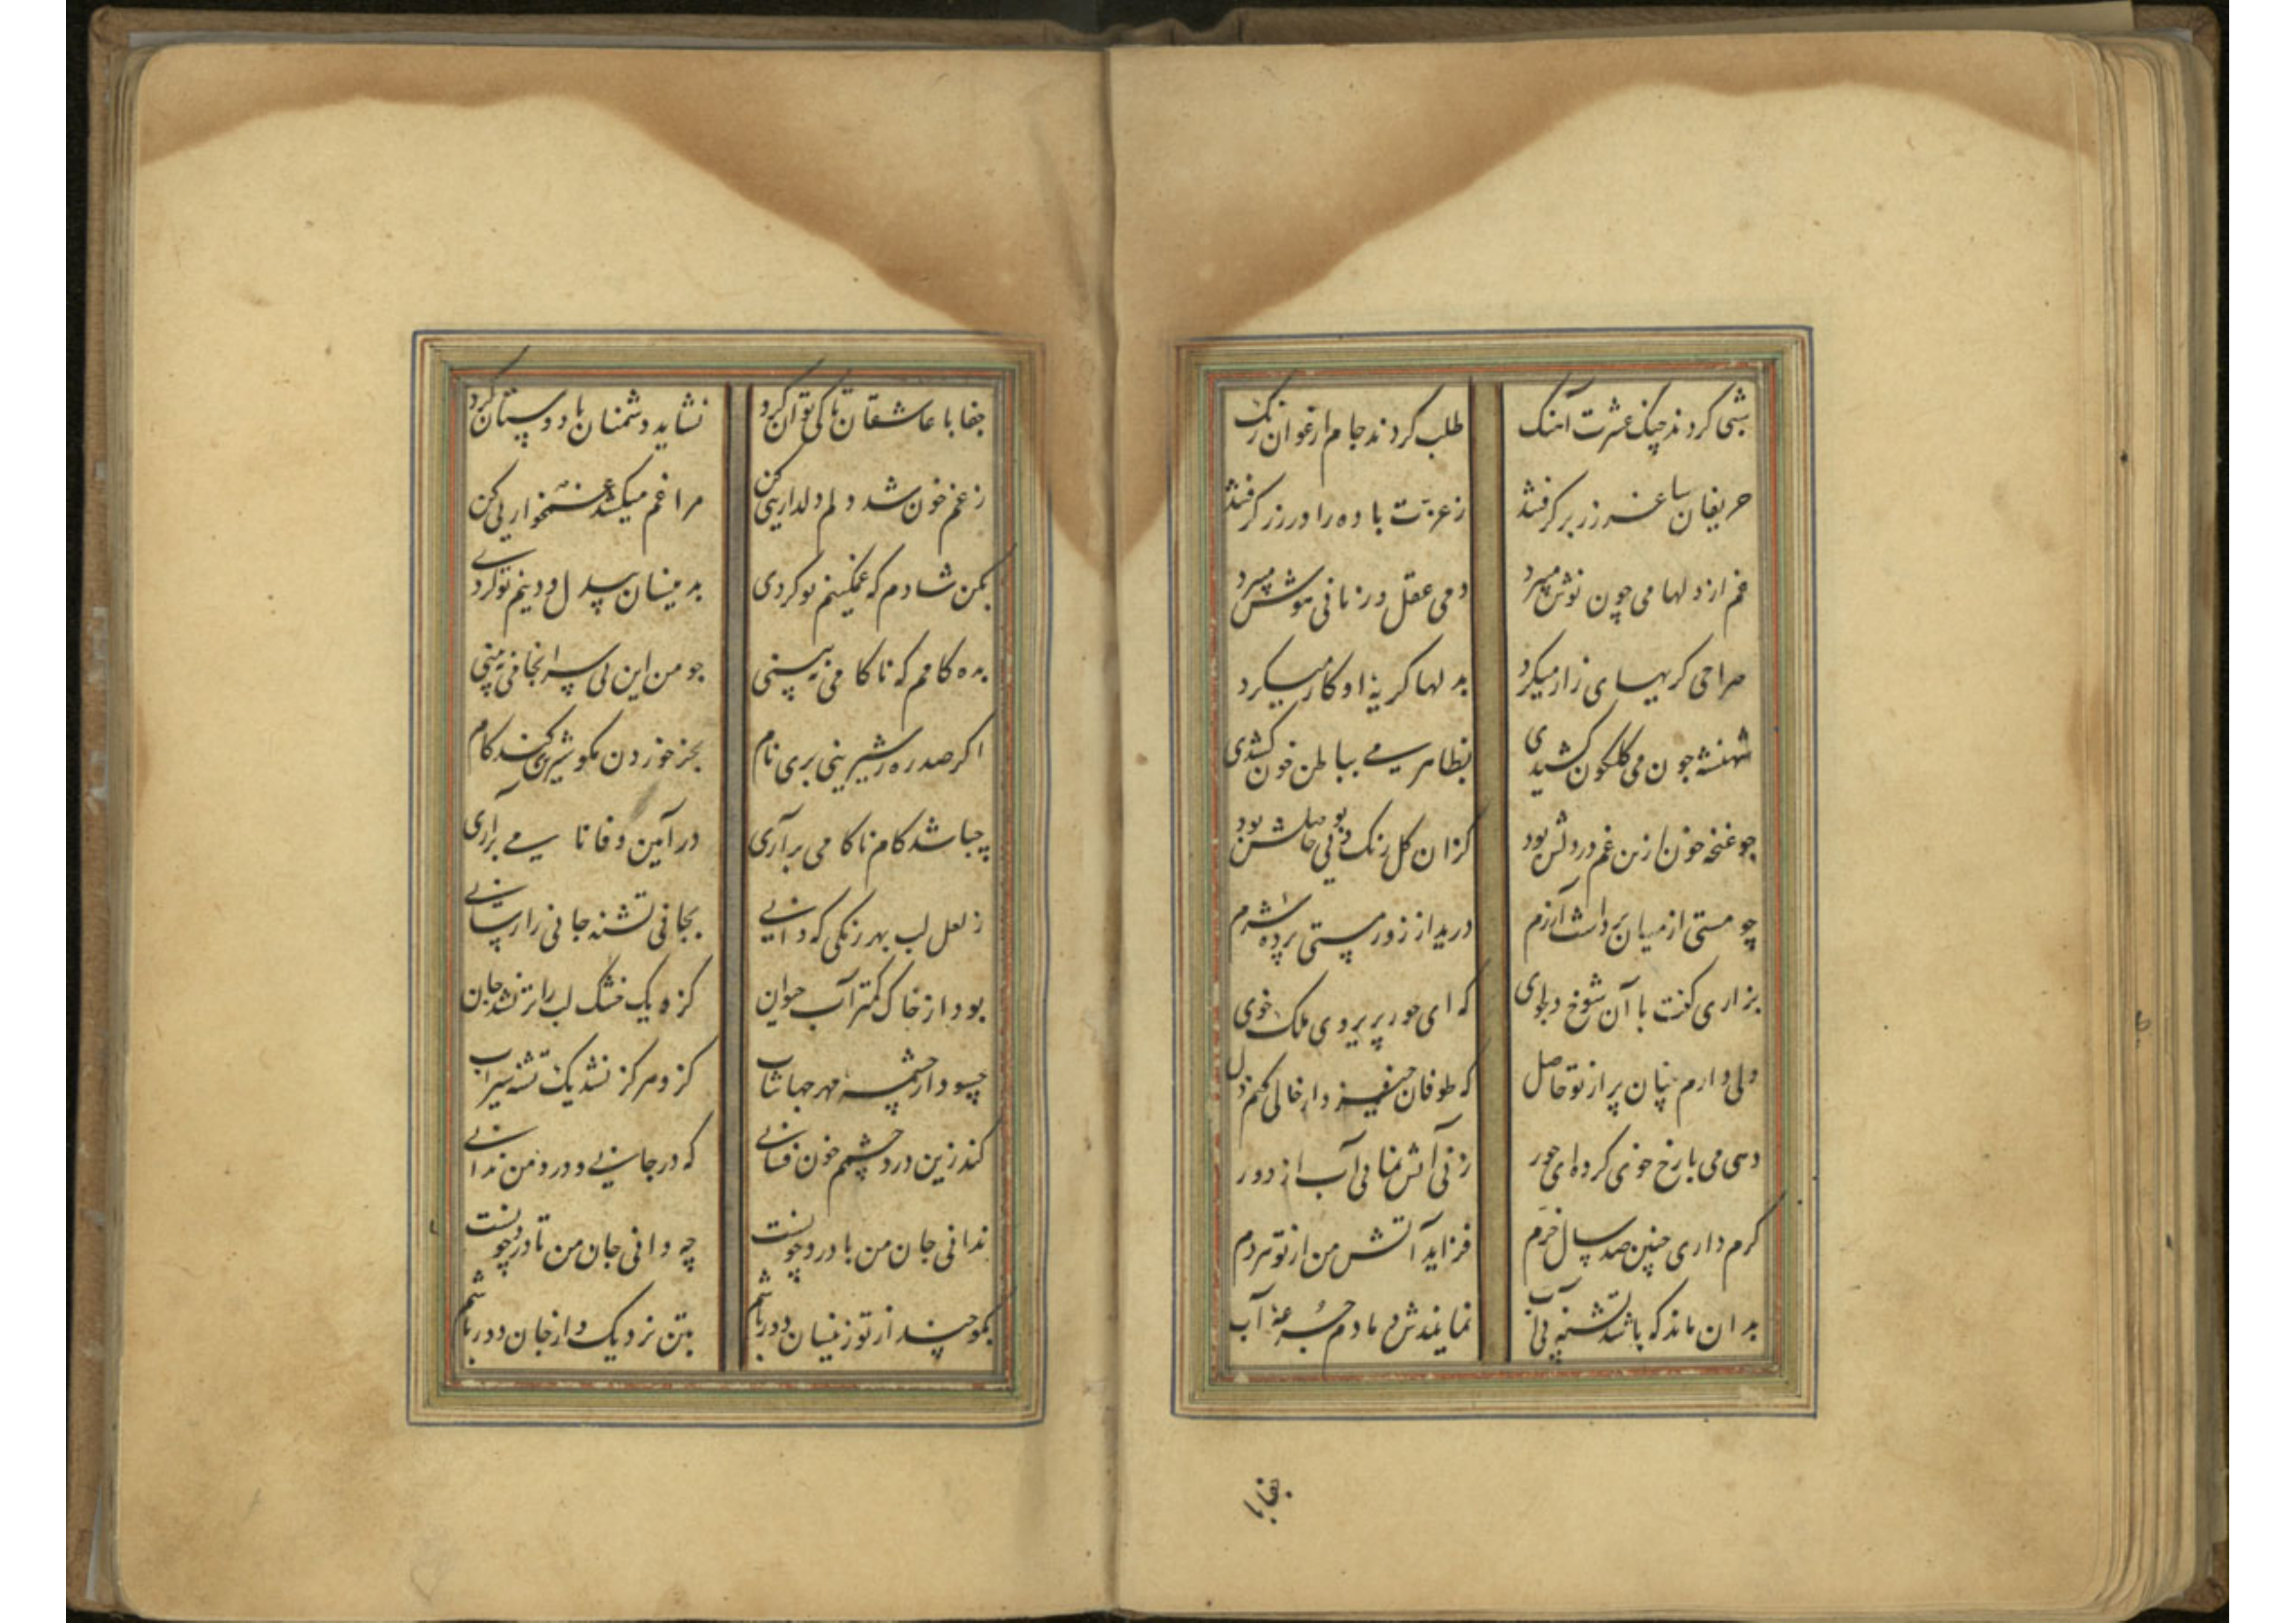 شبی کردند چنک عشرت آهنک
طلب کردند جام ارغوان رنک
حریفان ساغر زر بر کرفتند
ز عزت باده را در زر کرفتند
غم از دلها می چون نوش میبرد
دمی عقل و زمانی هوش میبرد
صراحی کریهای زار میکرد
بدلها کریهٔ او کار میکرد
شهنشه جون می کلکون کشیدی
بظاهر می بباطن خون کشیدی
چو غنچه خون ازین غم در دلش بود
کزان کل رنک و بویی حاصلش بود
چو مستی از میان برداشت آزرم
درید از زور مستی پرده شرم
بزاری کفت با آن شوخ دلجوی
که ای حور پریروی ملک خوی
دلی دارم چنان پر از تو حاصل
که طوفان خیزد ار خالی کنم دل
دهی می با رخ خوی کرده ای حور
زنی آتش نمایی آب از دور
کرم داری چنین صد سال خرم
فزاید آتش من از تو هر دم
بدان ماند که باشد تشنه بی آب
نمایندش دمادم جرعهٔ آب
جفابا
جفا با عاشقان تا کی توان کرد
نشاید دشمنان با دوستان کرد
ز غم خون شد دلم دلداریی کن
مرا غم میکشد غمخواریی کن
بکن شادم که غمکینم تو کردی
بدینسان بیدل و دینم تو کردی
بده کامم که ناکامی نبینی
جو من این بی سرانجامی نبینی
اکر صد ره ز شیرینی بری نام
بجز خوردن مکو شیرین کند کام
چباشد کام ناکامی برآری
در آیین وفا نامی براری
ز لعل لب بهر رنکی که دانی
بجانی تشنه جانی را رسانی
بود از خاک کمتر آب حیوان
کزه یک خشک لب را تر نشد جان
چسود از چشمه مهر جهانتاب
کزو هرکز نشد یک تشنه سیراب
کند زین درد چشمم خون فشانی
که در جانی و درد من ندانی
ندانی جان من با درد چونست
چه دانی جان من تا درد چونست
بکو چند از تو زینسان دور باشم
بتن نزدیک و از جان دور باشم